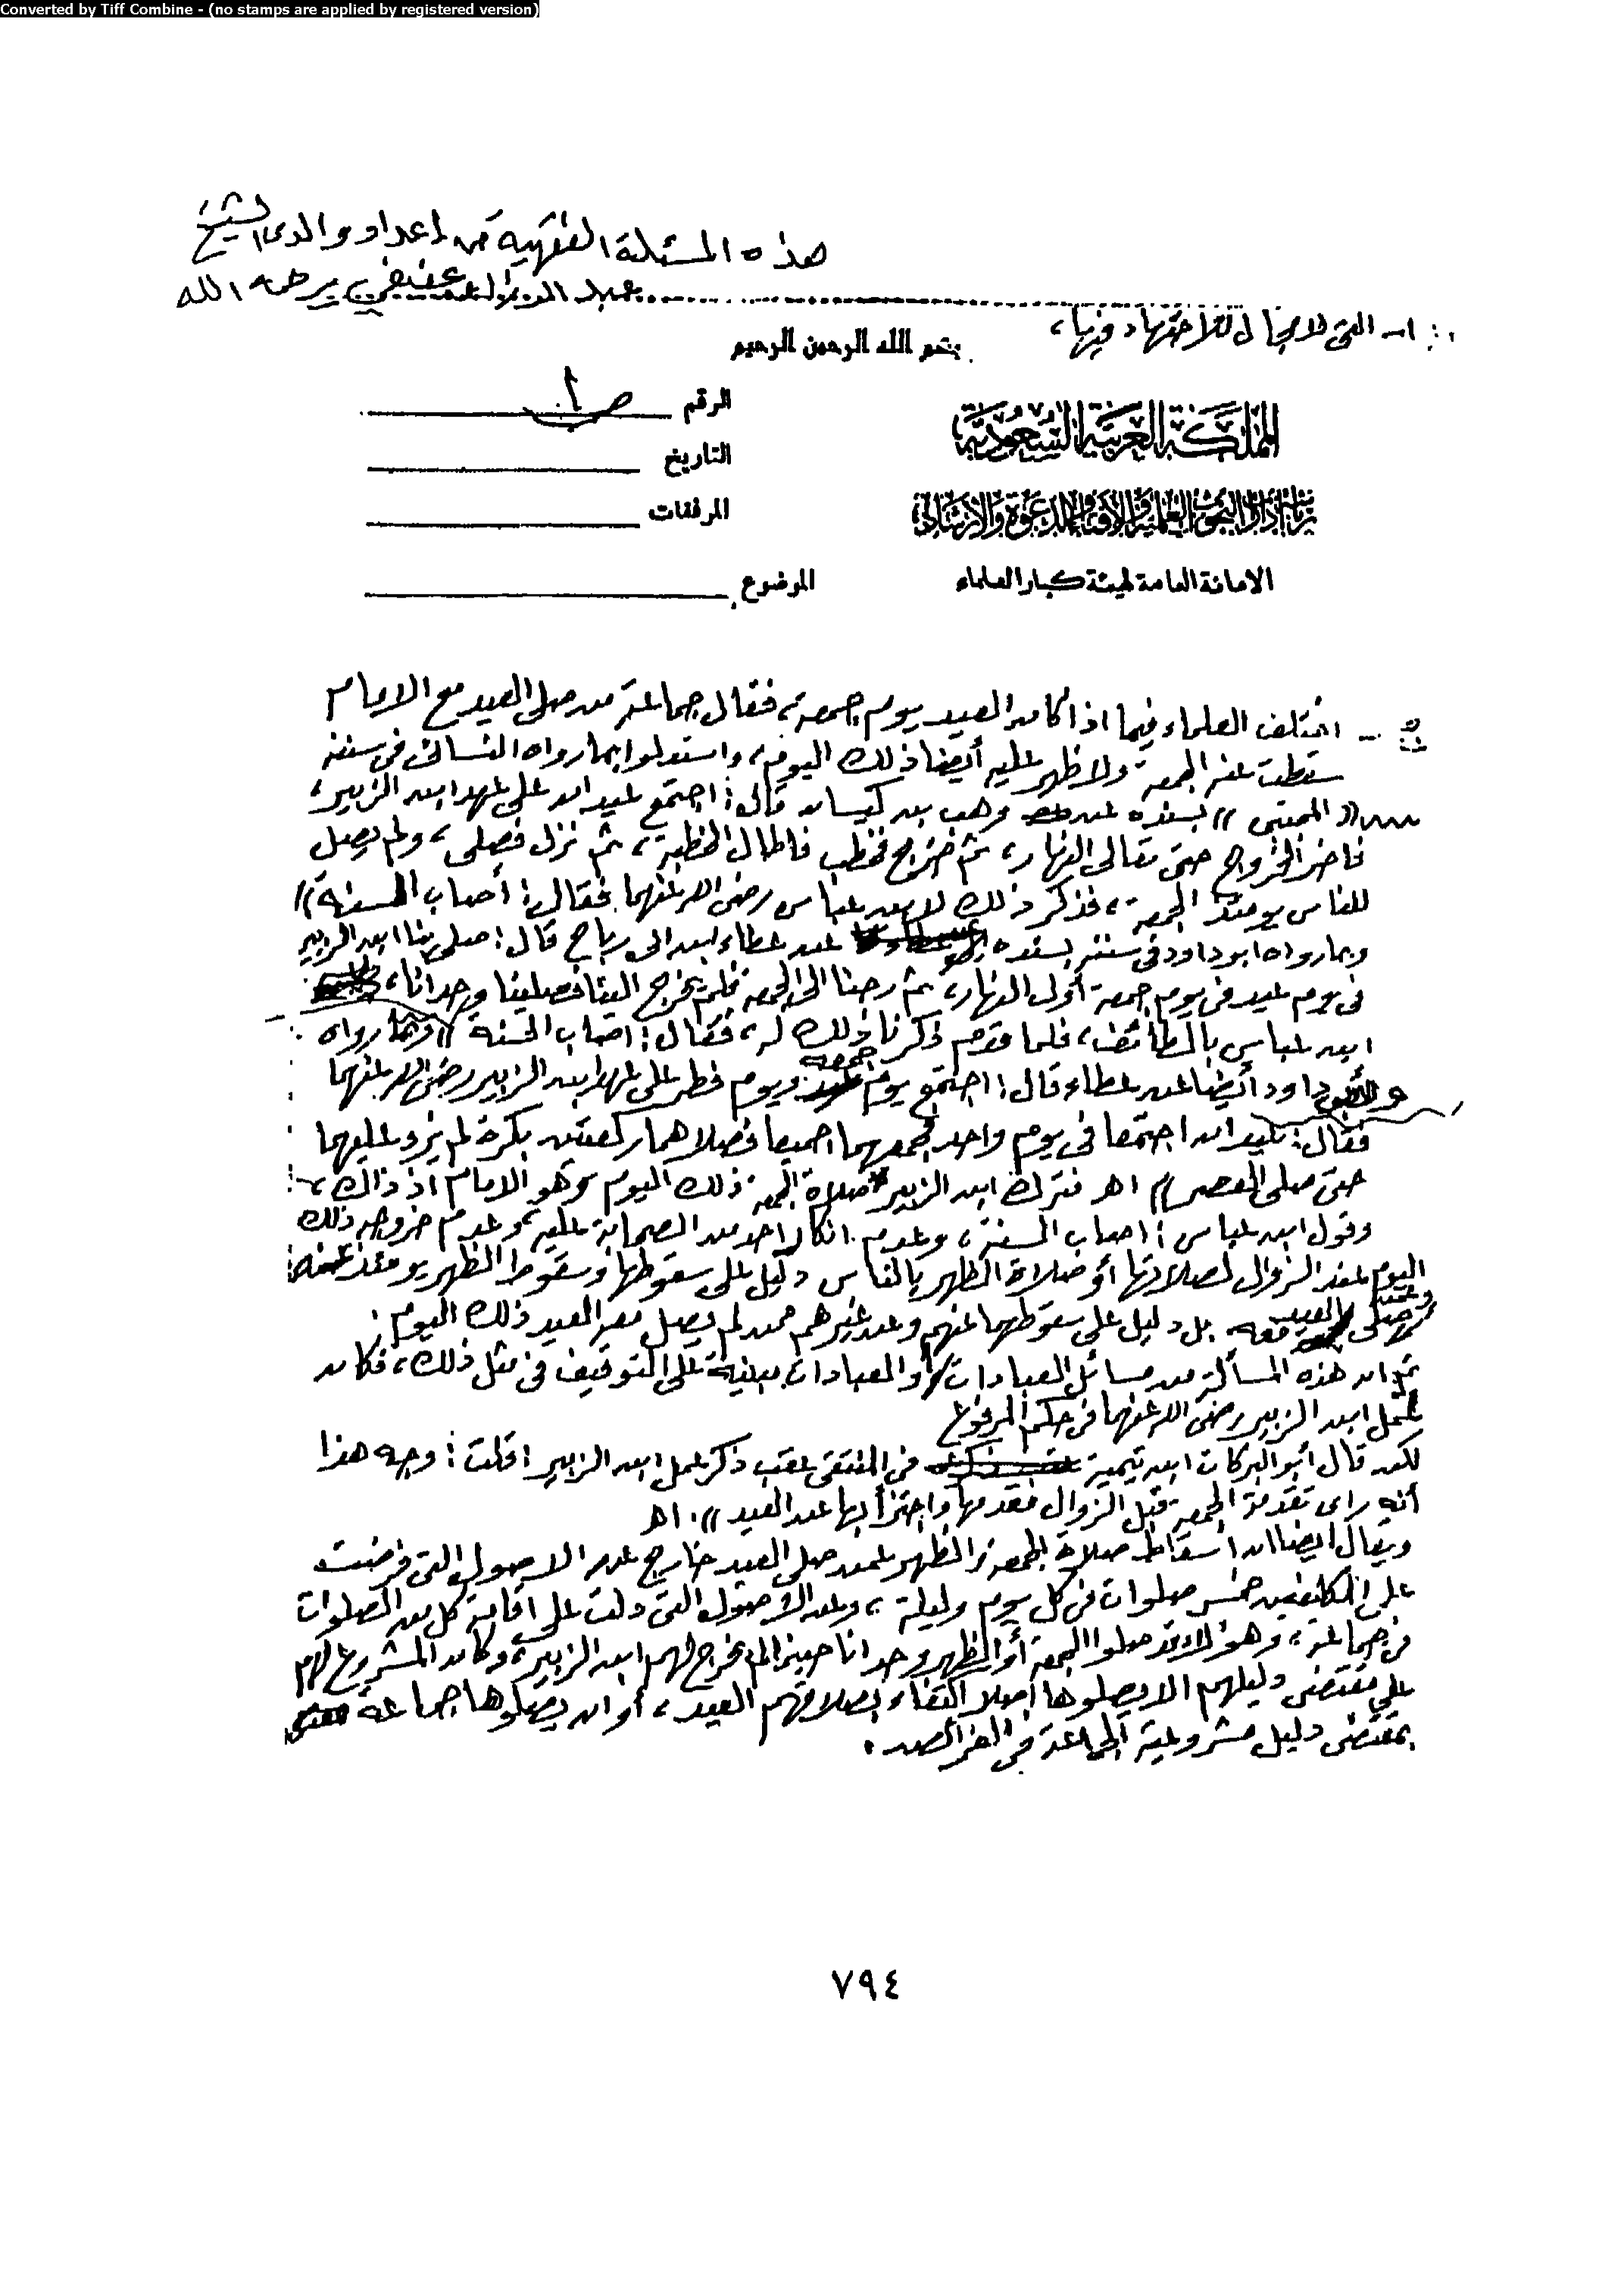 Converted by Tiff Combine - (no stamps are applied by registered version)
هذه المسئلة الفقهية من إعداد والدى الشيخ
عبد الرزاق عفيفي يرحمه الله
١ـ التى لا مجال للاجتهاد فيها،
بسم الله الرحمن الرحيم
المملكة العربية السعودية
رئاسة إدارات البحوث العلمية والافتاء والدعوة والارشاد
الامانة العامة لهيئة كبار العلماء
الرقم ص ١
التاريخ
المرفقات
الموضوع
اختلف العلماء فيما اذا كان العيد يوم جمعة، فقال جماعة من صلى العيد مع الامام
سقطت عنه الجمعة ولا ظهر عليه أيضا ذلك اليوم، واستدلوا بما رواه النسائى فى سننه
((المجتبى)) بسنده عن وهب بن كيسان قال: اجتمع عيدان على عهد ابن الزبير،
فاخر الخروج حتى تعالى النهار، ثم خرج فخطب فاطال الخطبة، ثم نزل فصلى، ولم يصل
للناس يومئذ الجمعة، فذكر ذلك لابن عباس رضى الله عنهما فقال: أصاب السنة))
وبما رواه ابو داود فى سننه بسنده عن عطاء ابن ابى رباح قال: صلى بنا ابن الزبير
فى يوم عيد فى يوم جمعة أول النهار، ثم رحنا الى الجمعة فلم يخرج الينا فصلينا وحدانا، وكان
ابن عباس بالطائف، فلما قدم ذكرنا ذلك له، فقال: اصاب السنة)) وبما رواه
أبو داود أيضا عن عطاء قال: اجتمع يوم جمعه ويوم فطر على عهد ابن الزبير رضى الله عنهما
فقال: عيدان اجتمعا فى يوم واحد فجمعهما جميعا فصلاهما ركعتين بكرة لم يزد عليهما
حتى صلى العصر)) اهـ فترك ابن الزبير صلاة الجمعة ذلك اليوم وهو الامام اذ ذاك،
وقول ابن عباس: اصاب السنة، وعدم انكار احد من الصحابة عليه وعدم خروجه ذلك
اليوم عند الزوال لصلاتها أو صلاة الظهر بالناس دليل على سقوطها وسقوط الظهر يومئذ عنه
وعمن صلى العيد معه بل دليل على سقوطهما عنهم وعن غيرهم ممن لم يصل معه العيد ذلك اليوم.
ثم ان هذه المسألة من مسائل العبادات والعبادات مبنية على التوقيف فى مثل ذلك، فكان
عمل ابن الزبير رضى الله عنهما فى حكم المرفوع
لكن قال أبو البركات ابن تيمية فى المنتقى عقب ذكر عمل ابن الزبير: قلت: وجه هذا
أنه راى تقدمة الجمعة قبل الزوال فقدمها واجتزأ بها عن العيد)). اهـ
ويقال ايضا ان اسقاط صلاة الجمعة والظهر عمن صلى العيد خارج عن الاصول التى فرضت
على المكلفين خمس صلوات فى كل يوم وليلة، وعن الأصول التى دلت على اقامة كل من الصلوات
فى جماعة، وهؤلاء قد صلوا الجمعة أو الظهر وحدانا حينما لم يخرج لهم ابن الزبير، وكان المشروع لهم
على مقتضى دليلهم الا يصلوها اصلا اكتفاء بصلاتهم العيد، أو ان يصلوها جماعة
بمقتضى دليل مشروعية الجماعة فى الفرائض.
٧٩٤